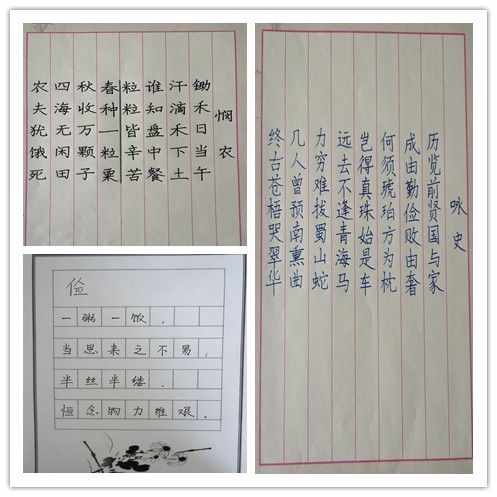 悯农
锄禾日当午
汗滴禾下土
谁知盘中餐
粒粒皆辛苦
春种一粒粟
秋收万颗子
四海无闲田
农夫犹饿死
俭
一粥一饭,
当思来之不易.
半丝半缕,
恒念物力维艰.
咏史
历览前贤国与家
成由勤俭败由奢
何须琥珀方为枕
岂得真珠始是车
远去不逢青海马
力穷难拔蜀山蛇
几人曾预南熏曲
终古苍梧哭翠华